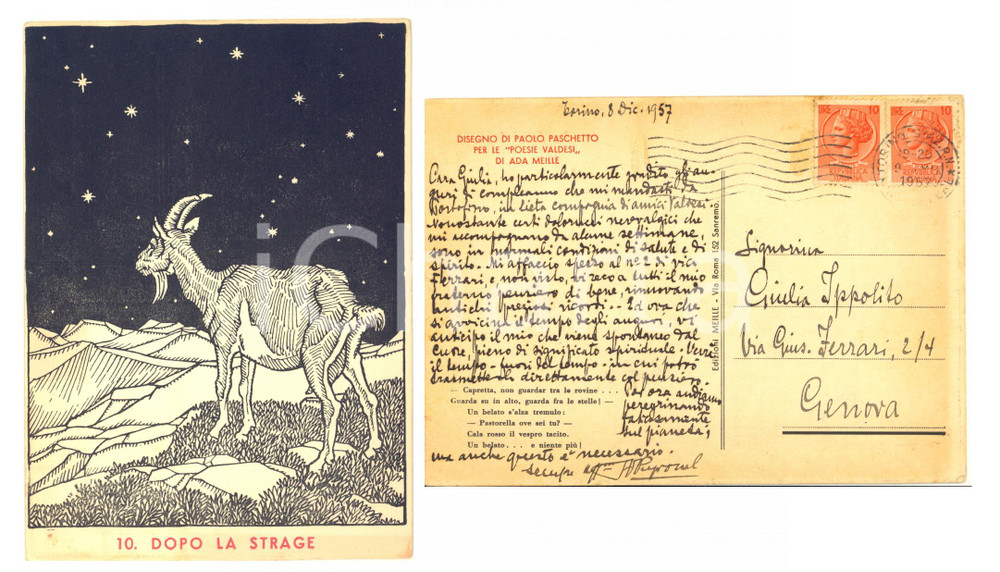 10. DOPO LA STRAGE
Torino, 8 Dic. 1957
DISEGNO DI PAOLO PASCHETTO
PER LE "POESIE VALDESI"
DI ADA MEILLE
Cara Giulia, ho particolarmente gradito gli au-
guri di compleanno che mi mandasti da
Portofino, in lieta compagnia di amici Valdesi.
Nonostante certi dolorucci nevralgici che
mi accompagnano da alcune settimane,
sono in normali condizioni di salute e di
spirito. Mi affaccio spesso al nº 2 di via
Ferrari, e, non visto, vi reco a tutti il mio
fraterno pensiero di bene, rinnovando
antichi preziosi ricordi. - Ed ora che
si avvicina il tempo degli auguri, vi
anticipo il mio che viene spontaneo dal
cuore, pieno di significato spirituale. Verrà
il tempo - fuori del tempo - in cui potrò
trasmetterli direttamente col pensiero.
Per ora andiamo
peregrinando
faticosamente
sul pianeta;
ma anche questo è necessario.
sempre
— Capretta, non guardar tra le rovine . . .
Guarda su in alto, guarda fra le stelle! —
Un belato s'alza tremulo:
— Pastorella ove sei tu? —
Cala rosso il vespro tacito.
Un belato . . . e niente più!
Edizioni MEILLE - Via Roma 152 Sanremo.
10 10
TORINO
1957
Signorina
Giulia Ippolito
Via Gius. Ferrari, 2/4
Genova